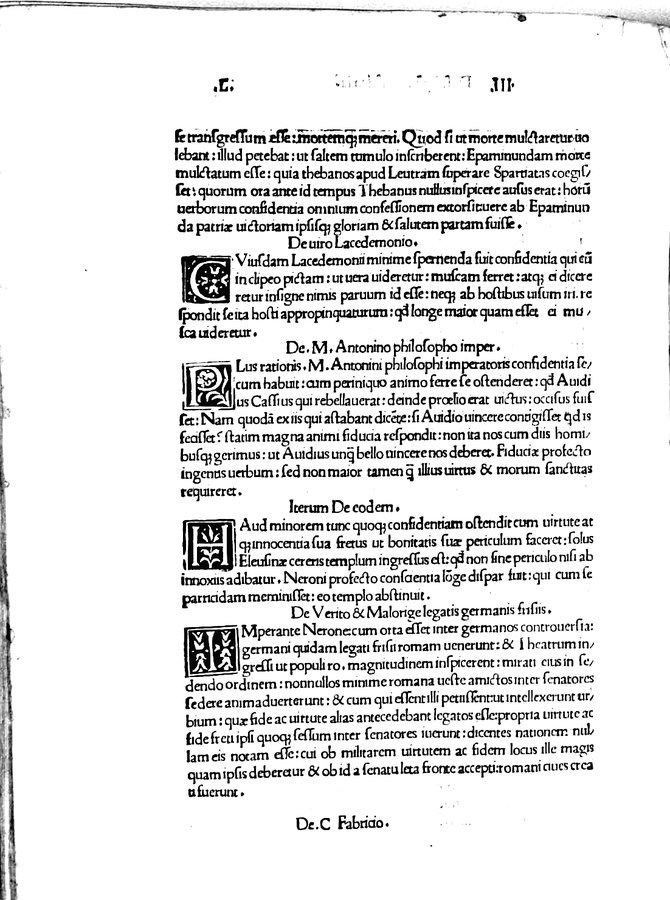 .L. III.
se transgressum esse: mortemq; mereri. Quod si ut morte mulctaretur uo
lebant: illud petebat: ut saltem tumulo inscriberent: Epaminundam morte
mulctatum esse: quia thebanos apud Leutram superare Spartiatas coegis/
set: quorum ora ante id tempus Thebanus nullus inspicere ausus erat: horū
uerborum confidentia omnium confessionem extorsit uere ab Epaminun
da patriæ uictoriam ipsisq; gloriam & salutem partam fuisse.
De uiro Lacedemonio.
CViusdam Lacedemonii minime spernenda fuit confidentia qui cū
in clipeo pictam: ut uera uideretur: muscam ferret: atq; ei dicere
retur insigne nimis paruum id esse: neq; ab hostibus uisum iri. re
spondit se ita hosti appropinquaturum: qđ longe maior quam esset ei mu/
sca uideretur.
De. M. Antonino philosopho imper.
PLus rationis. M. Antonini philosophi imperatoris confidentia se/
cum habuit: cum periniquo animo ferre se ostenderet: qđ Auidi
us Cassius qui rebellauerat: deinde prœlio erat uictus: occisus fuis
set: Nam quodā ex iis qui astabant dicēte: si Auidio uincere contigisset qđ is
fecisset? statim magna animi fiducia respondit: non ita nos cum diis homi/
busq; gerimus: ut Auidius unq̄ bello uincere nos deberet. Fiduciæ profecto
ingentis uerbum: sed non maior tamen q̄ illius uirtus & morum sanctitas
requireret.
Iterum De eodem.
HAud minorem tunc quoq; confidentiam ostendit cum uirtute at
q; innocentia sua fretus ut bonitatis suæ periculum faceret: solus
Eleusinæ cereris templum ingressus est: qđ non sine periculo nisi ab
innoxiis adibatur. Neroni profecto conscientia lōge dispar fuit: qui cum se
parricidam meminisset: eo templo abstinuit.
De Verito & Malorige legatis germanis frisiis.
IMperante Nerone: cum orta esset inter germanos controuersia:
germani quidam legati frisii romam uenerunt: & Theatrum in/
gressi ut populi ro. magnitudinem inspicerent: mirati eius in se/
dendo ordinem: nonnullos minime romana ueste amictos inter senatores
sedere animaduerterunt: & cum qui essent illi petiissent: ut intellexerunt ur/
bium: quæ fide ac uirtute alias antecedebant legatos esse: propria uirtute ac
fide freti ipsi quoq; sessum inter senatores iuerunt: dicentes nationem nul
lam eis notam esse: cui ob militarem uirtutem ac fidem locus ille magis
quam ipsis deberetur & ob id a senatu læta fronte accepti: romani ciues crea
ti fuerunt.
De. C Fabricio.